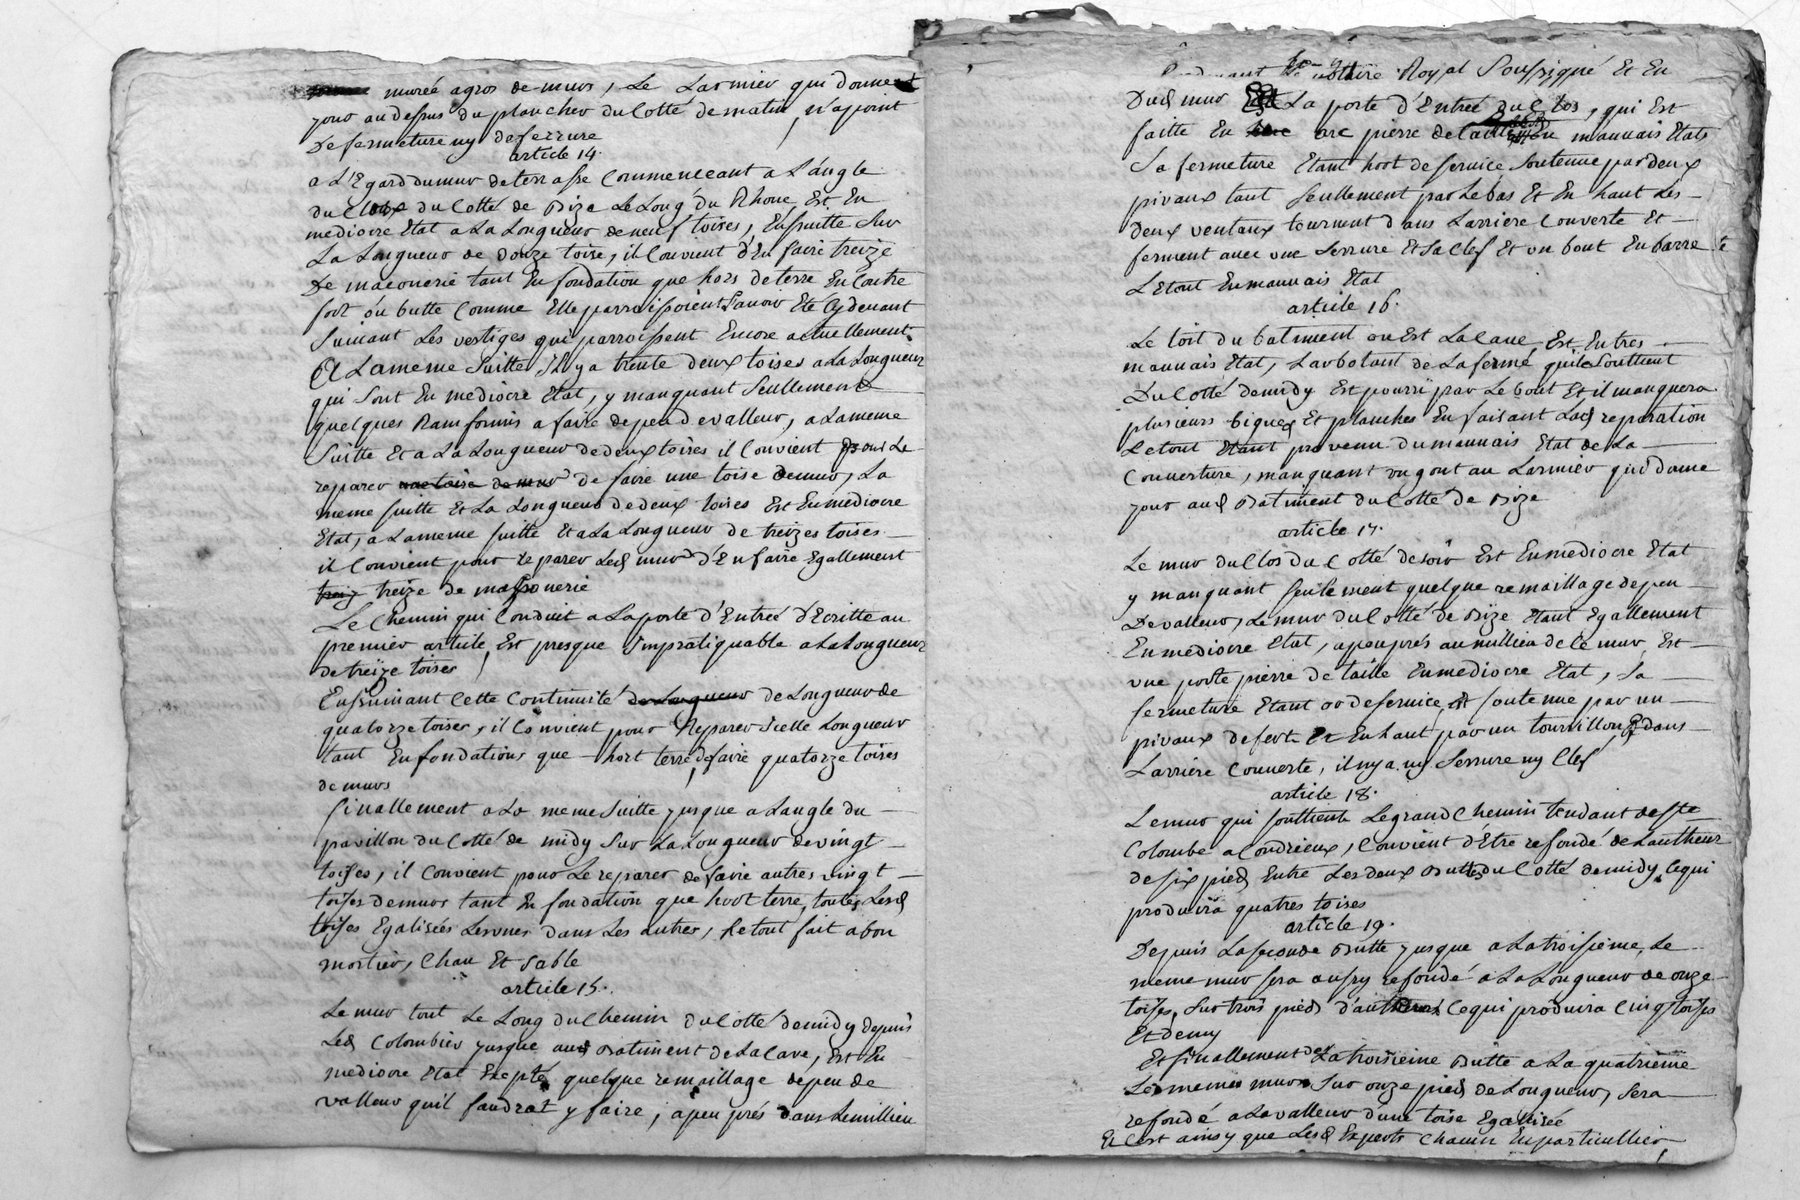 murée agros de murs, Le Larmier qui donne
jour audessus du plancher du Cotté de matin, n'apoint
De fermeture ny deserrure
article 14.
a L'Egard du mur de terrasse Commenceant a L'angle
du Clos du Cotté de Bize Le Long du Rhone, Est En
mediocre Etat a La Longueur de neuf toises, Ensuitte Sur
La Longueur de Douze toise, il Convient d'En faire treize
De maconerie tant En fondation que hors de terre En Contre
fort ou butte Comme Elle parroissoient Lavoir Eté Cydevant
Suivant Les vestiges qui parroissent Encore actuellement.
A Lameme Suitte Il y a trente deux toises a La Longueur
qui Sont En mediocre Etat, y manquant Seullement
quelques Ramfornis a faire de peu de valleur, a Lameme
Suitte Et a La Longueur de deux toises il Convient pour Le
reparer une toise de mur de faire une toise de mur, La
meme suitte Et La Longueur de deux toises Est En mediocre
Etat, a Lameme suitte Et a La Longueur de treizes toises
il Convient pour reparer Led mur d'En faire Egallement
treiz treize de massonerie
Le Chemin qui Conduit a La porte d'Entreé d'Ecritte au
premier article, Est presque Impratiquable a La Longueur
de treize toises
Ensuivant Cette Continuité de Longueur de Longueur de
quatorze toises, il Convient pour Reparer Icelle Longueur
tant En fondations que hort terre, de faire quatorze toises
de murs
finallement a La meme Suitte jusque a Langle du
pavillon du Cotté de midy Sur La Longueur de vingt
toises, il Convient pour Le reparer de faire autres vingt
toises de murs tant En fondation que hort terre, toutes Lesd
toises Egalisées Les unes dans Les autres, Le tout fait a bon
mortier, Chau Et Sable
article 15.
Le mur tout Le Long du Chemin du Cotté de midy depuis
Led Colombier jusque aud Batiment de La Cave, Est En
mediocre Etat Excepté quelque remaillage de peu de
valleur quil faudrat y faire, a peu prés dans Lemillieu
notaire Royal Soussigné Et En
Dud mur Est La porte d'Entreé du Clos, qui Est
faitte En arc pierre de taille En mauvais Etats
Sa fermeture Etant hort de service Soutenue par deux
pivaux tant Seullement par Le bas Et En haut Les
deux ventaux tournent dans Larriere Couverte Et
ferment avec une Serrure Et Sa Clef Et un bout En barre
Le tout En mauvais Etat
article 16.
Le toit du batiment ou Est La Cave Est En tres
mauvais Etat, Larbotant de La fermé qui Le Souttient
Du Cotté de midy Est pourri par Le bout Et il manquera
plusieurs bigues Et planches En faisant Lad reparation
Le tout Etant provenu du mauvais Etat de La
Couverture, manquant un gont au Larmier qui donne
jour aud Batiment du Cotté de Bize
article 17.
Le mur du Clos du Cotté de soir Est En mediocre Etat
y manquant Seulement quelque remaillage de peu
De valleur, Le mur du Cotté de Bize Etant Egallement
En mediocre Etat, a peu prés au millieu de Ce mur, Est
une porte pierre de taille En mediocre Etat, Sa
fermeture Etant or de service, Est soutenue par un
pivaux de fert Et En haut par un tourrillon dans
Larriere Couverte, il ny a ny Serrure ny Clef
article 18.
Le mur qui Souttient Le grand Chemin tendant de Ste
Colombe a Condrieux, Convient d'Etre refondé de Lautheur
de six pied Entre Les deux Buttes du Cotté de midy, Ce qui
produira quatres toises
article 19.
Depuis La seconde Butte jusque a La troisieme, Le
meme mur sera aussy refondé a La Longueur de onze
toises, Sur trois pied d'auteur Ce qui produira Cinq toises
Et demy
Et finallement de La troisieme Butte a La quatrieme
Le meme mur Sur onze pied de Longueur, Sera
refondé a La valleur d'une toise Egalisée
Et C'est ainsy que Lesd Experts Chacun En particullier,